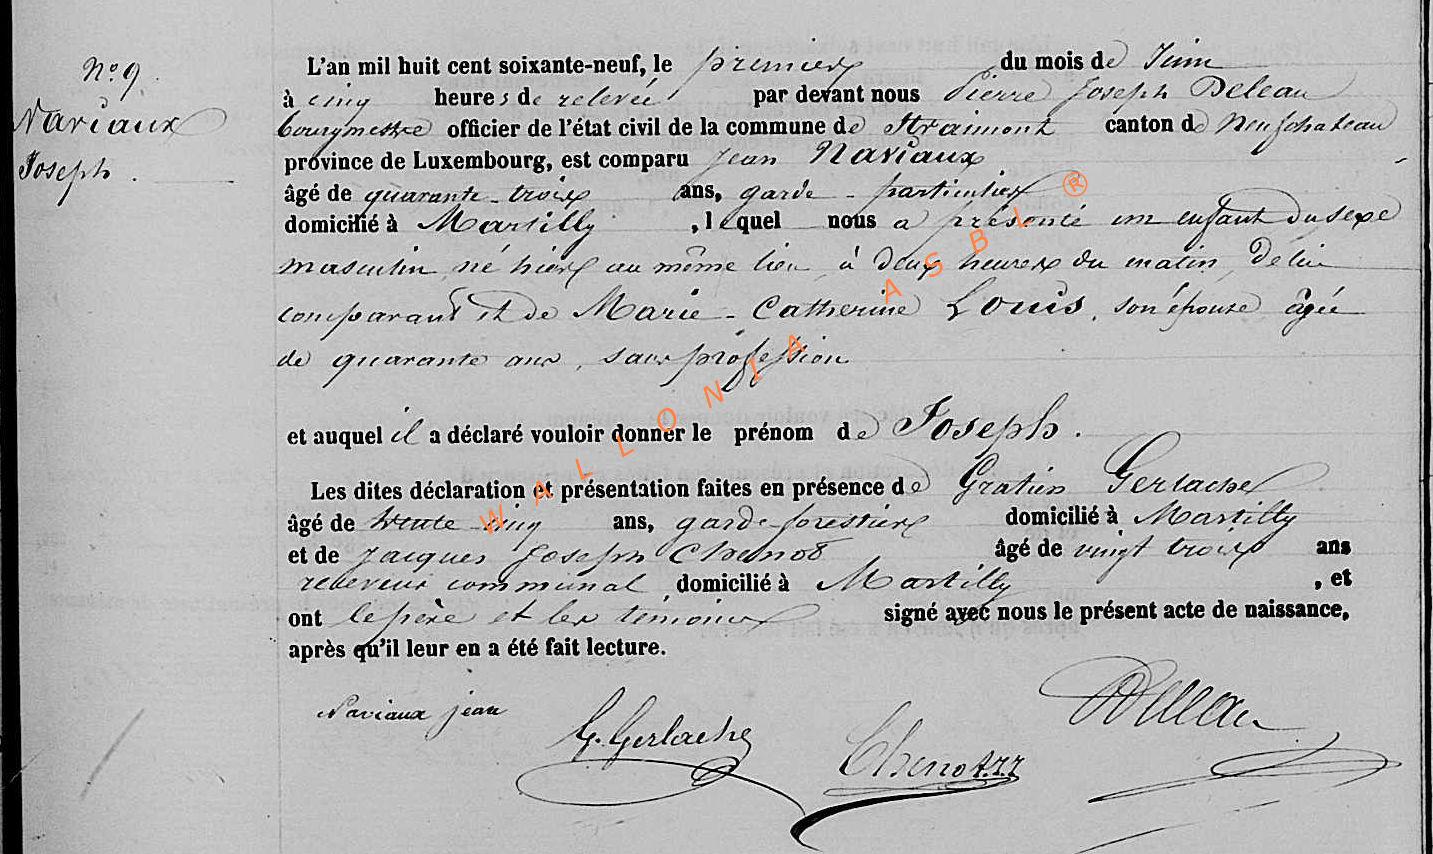 N° 9.
Naviaux
Joseph.
L'an mil huit cent soixante-neuf, le premier du mois de Juin
à cinq heures de relevée par devant nous Pierre Joseph Deleau
bourgmestre officier de l'état civil de la commune de Straimont canton de Neufchateau
province de Luxembourg, est comparu Jean Naviaux
âgé de quarante-trois ans, garde-particulier
domicilié à Martilly, lequel nous a présenté un enfant du sexe
masculin, né hier au même lieu, à deux heures du matin, de lui
comparant et de Marie-Catherine Louis, son épouse âgée
de quarante ans, sans profession
et auquel il a déclaré vouloir donner le prénom de Joseph.
Les dites déclaration et présentation faites en présence de Gratien Gerlache
âgé de trente cinq ans, garde-forestier domicilié à Martilly
et de Jacques Joseph Chenot âgé de vingt trois ans
receveur communal, domicilié à Martilly, et
ont le père et les témoins signé avec nous le présent acte de naissance,
après qu'il leur en a été fait lecture.
Naviaux jean
G. Gerlache
Chenot
Deleau
WALLONIA ASBL ®